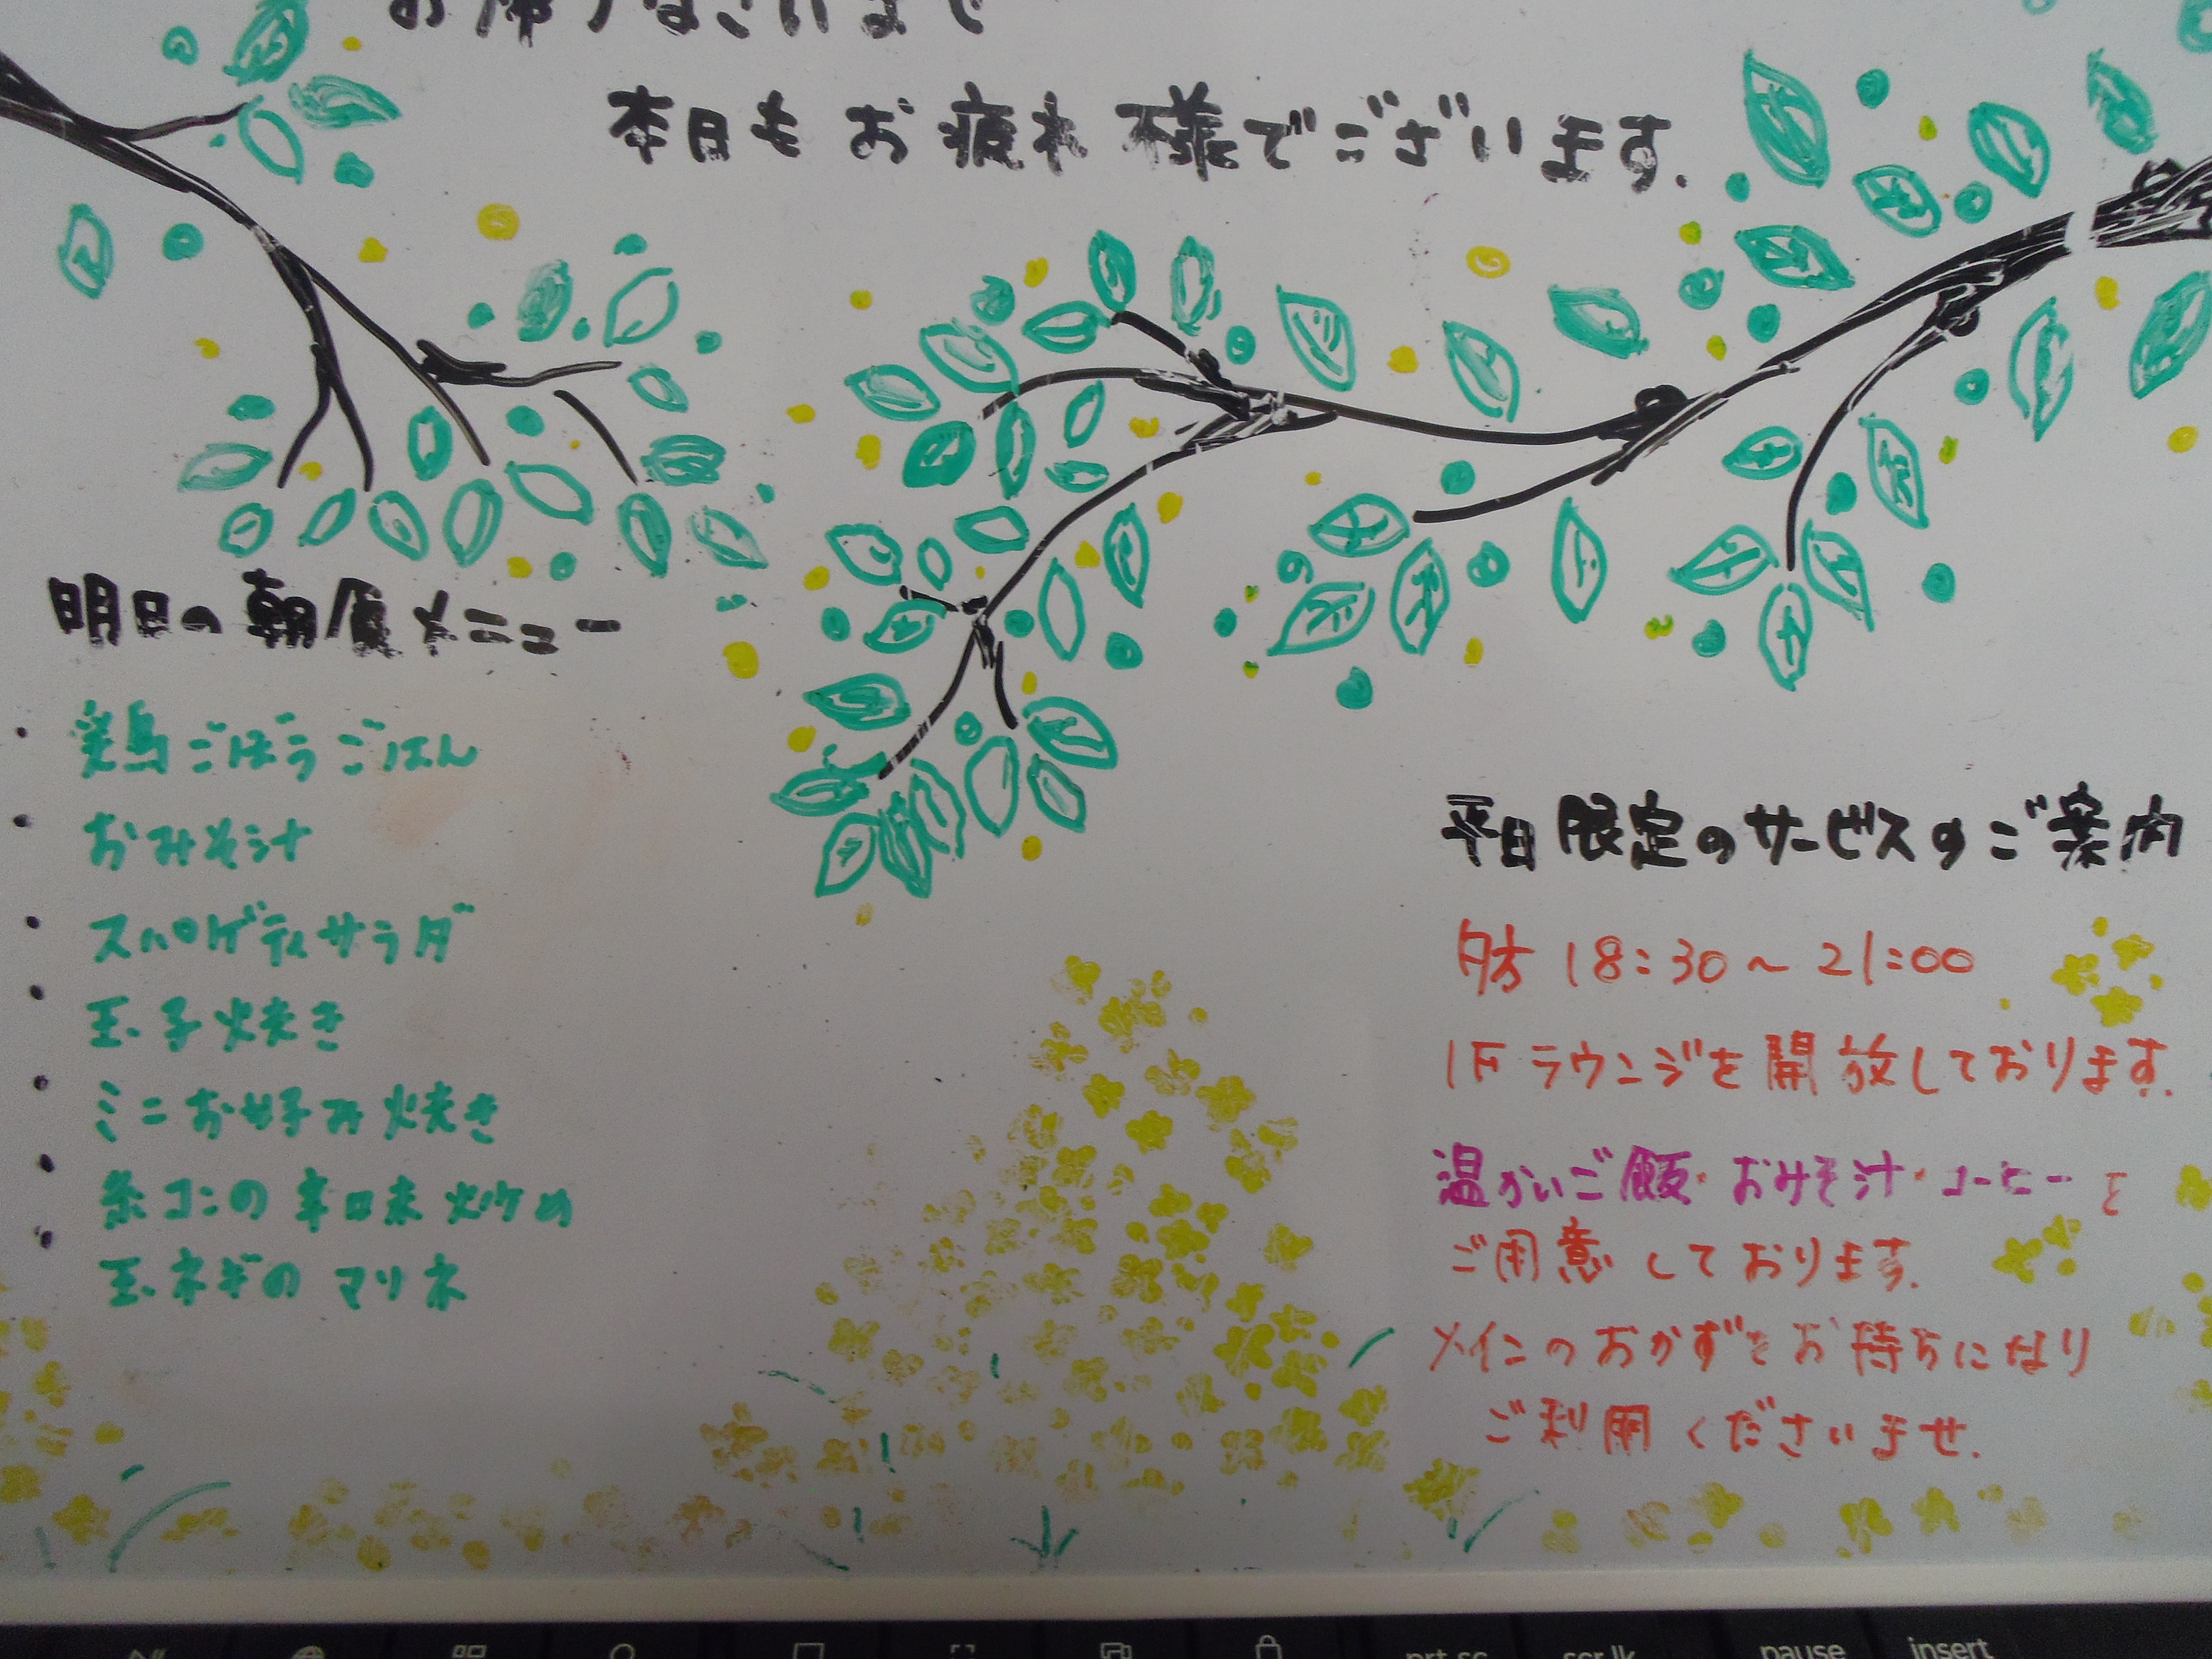 お帰りなさいませ
本日もお疲れ様でございます.
明日の朝食メニュー
・鶏ごぼうごはん
・おみそ汁
・スパゲティサラダ
・玉子焼き
・ミニお好み焼き
・糸コンの辛味炒め
・玉ネギのマリネ
平日限定のサービスのご案内
夕方 18:30～21:00
1Fラウンジを開放しております.
温かいご飯・おみそ汁・コーヒーを
ご用意しております.
メインのおかずをお持ちになり
ご利用くださいませ.
prt sc
scr lk
pause
insert